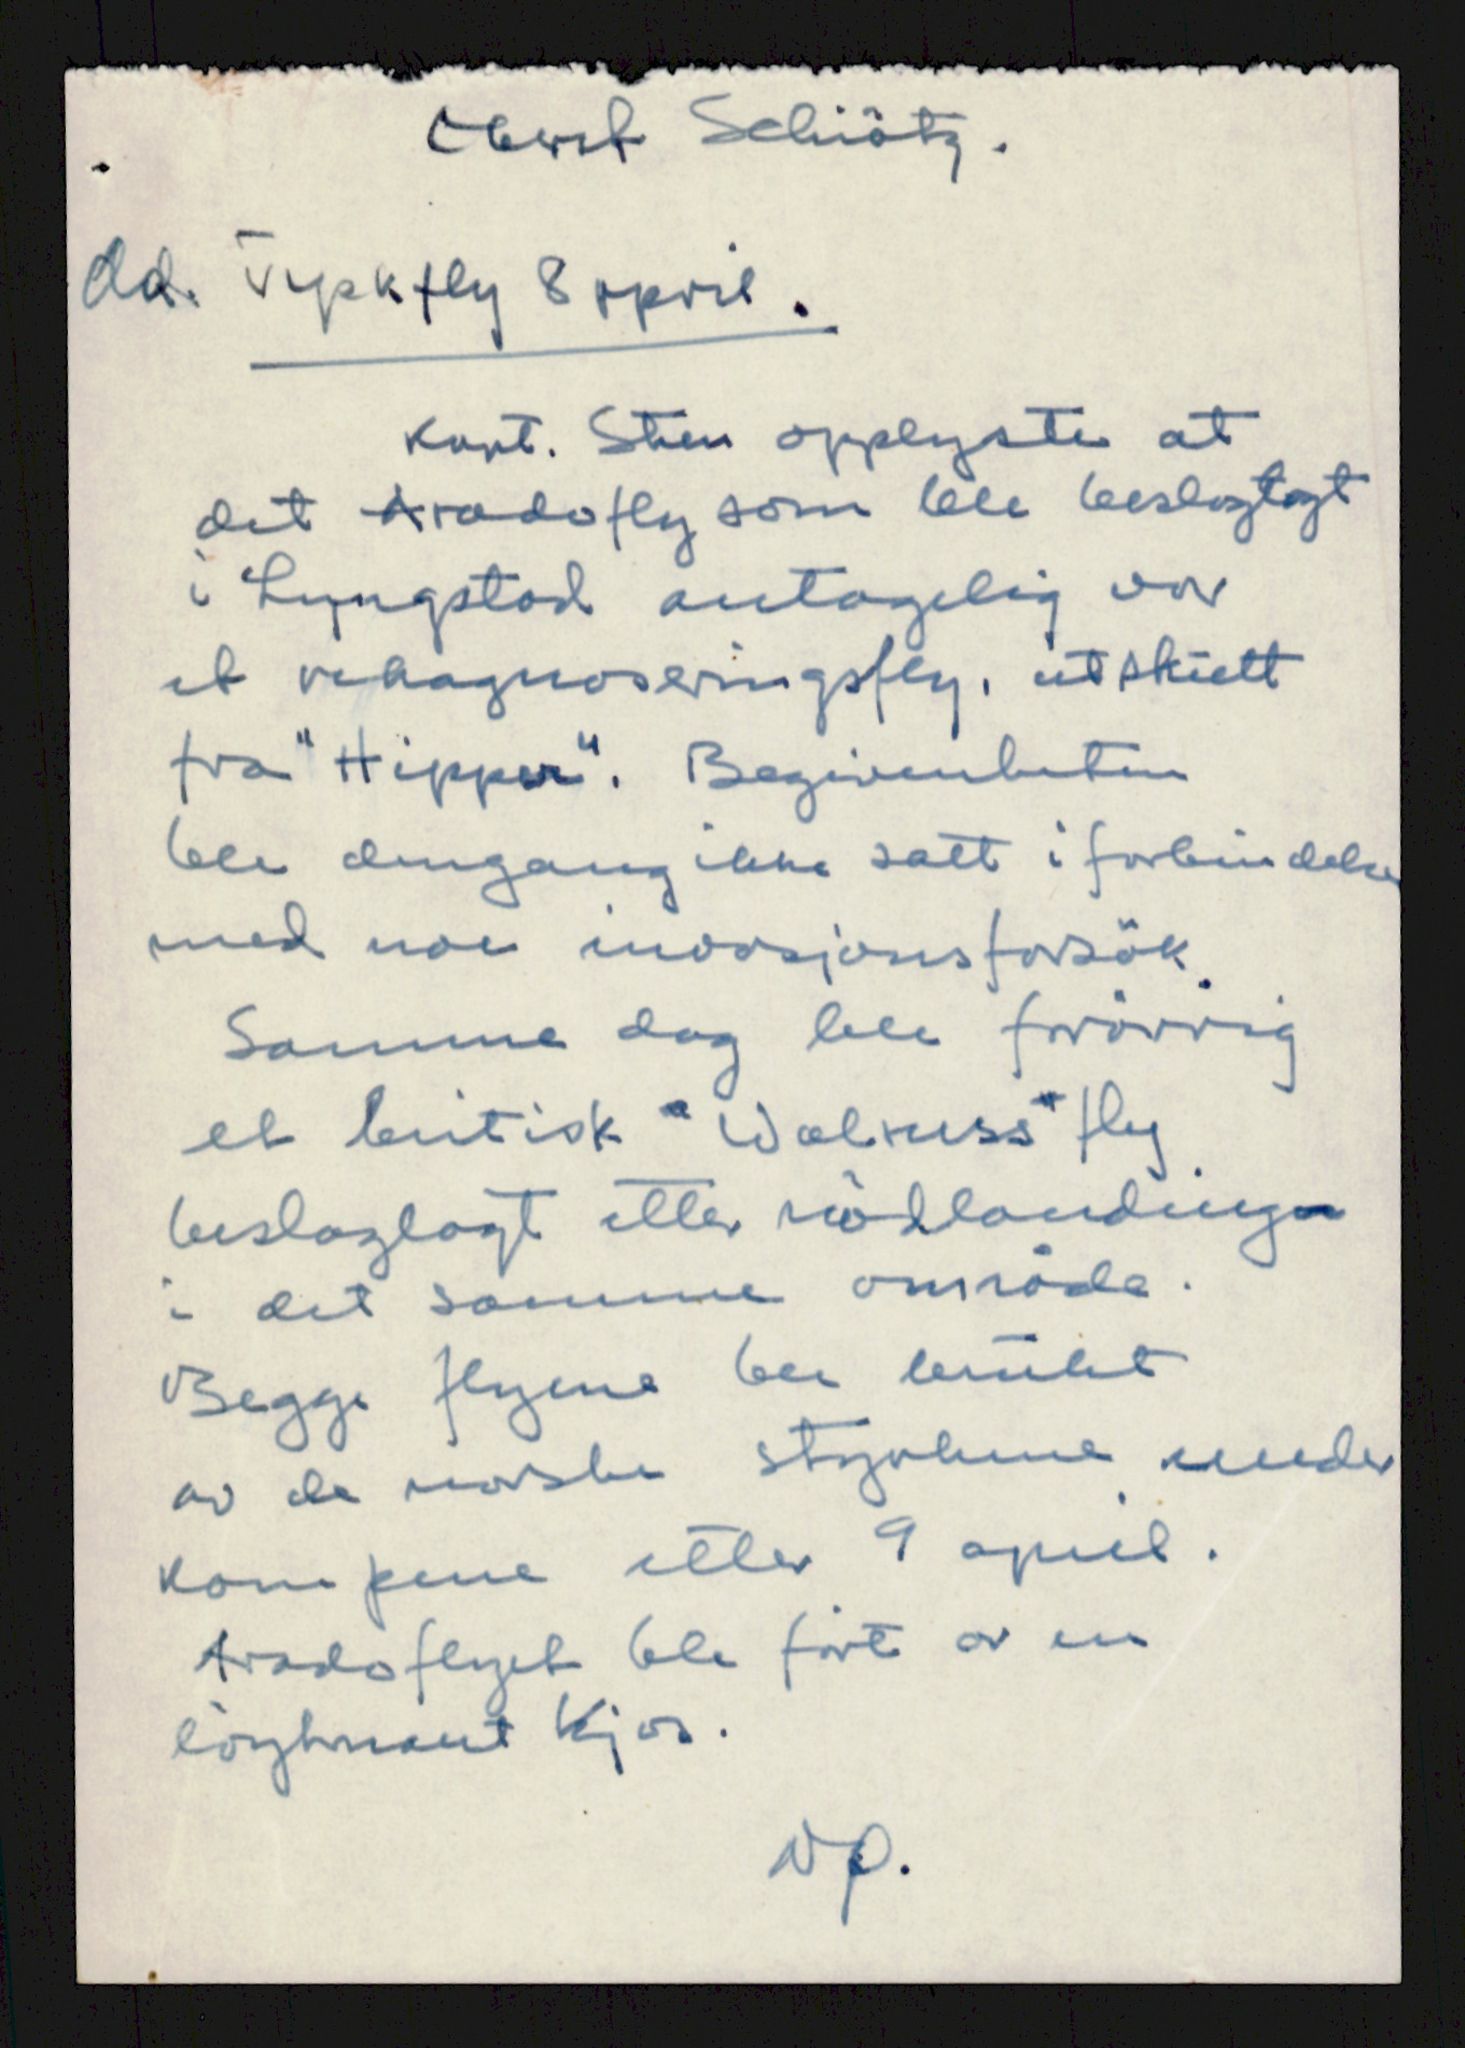 Oberst Schiötz.
Ad. Tyskfly 8 april.
Kapt. Sten opplyste at
det Aradofly som ble beslaglagt
i Lyngstad antagelig var
et rekognoseringsfly, utskutt
fra "Hipper". Begivenheten
ble dengang ikke satt i forbindelse
med noe invasjonsforsök.
Samme dag ble forövrig
et britisk "Walruss" fly
beslaglagt etter nödlandingen
i det samme område.
Begge flyene ble brukt
av de norske styrkene under
kampene etter 9 april.
Aradoflyet ble fört av en
löytnant Kjos.